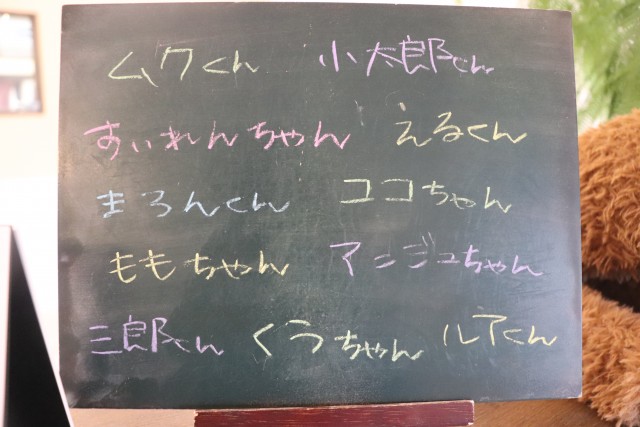 ムクくん 小太郎くん
すいれんちゃん えるくん
まろんくん ココちゃん
ももちゃん アンジュちゃん
三郎くん くうちゃん ルアくん